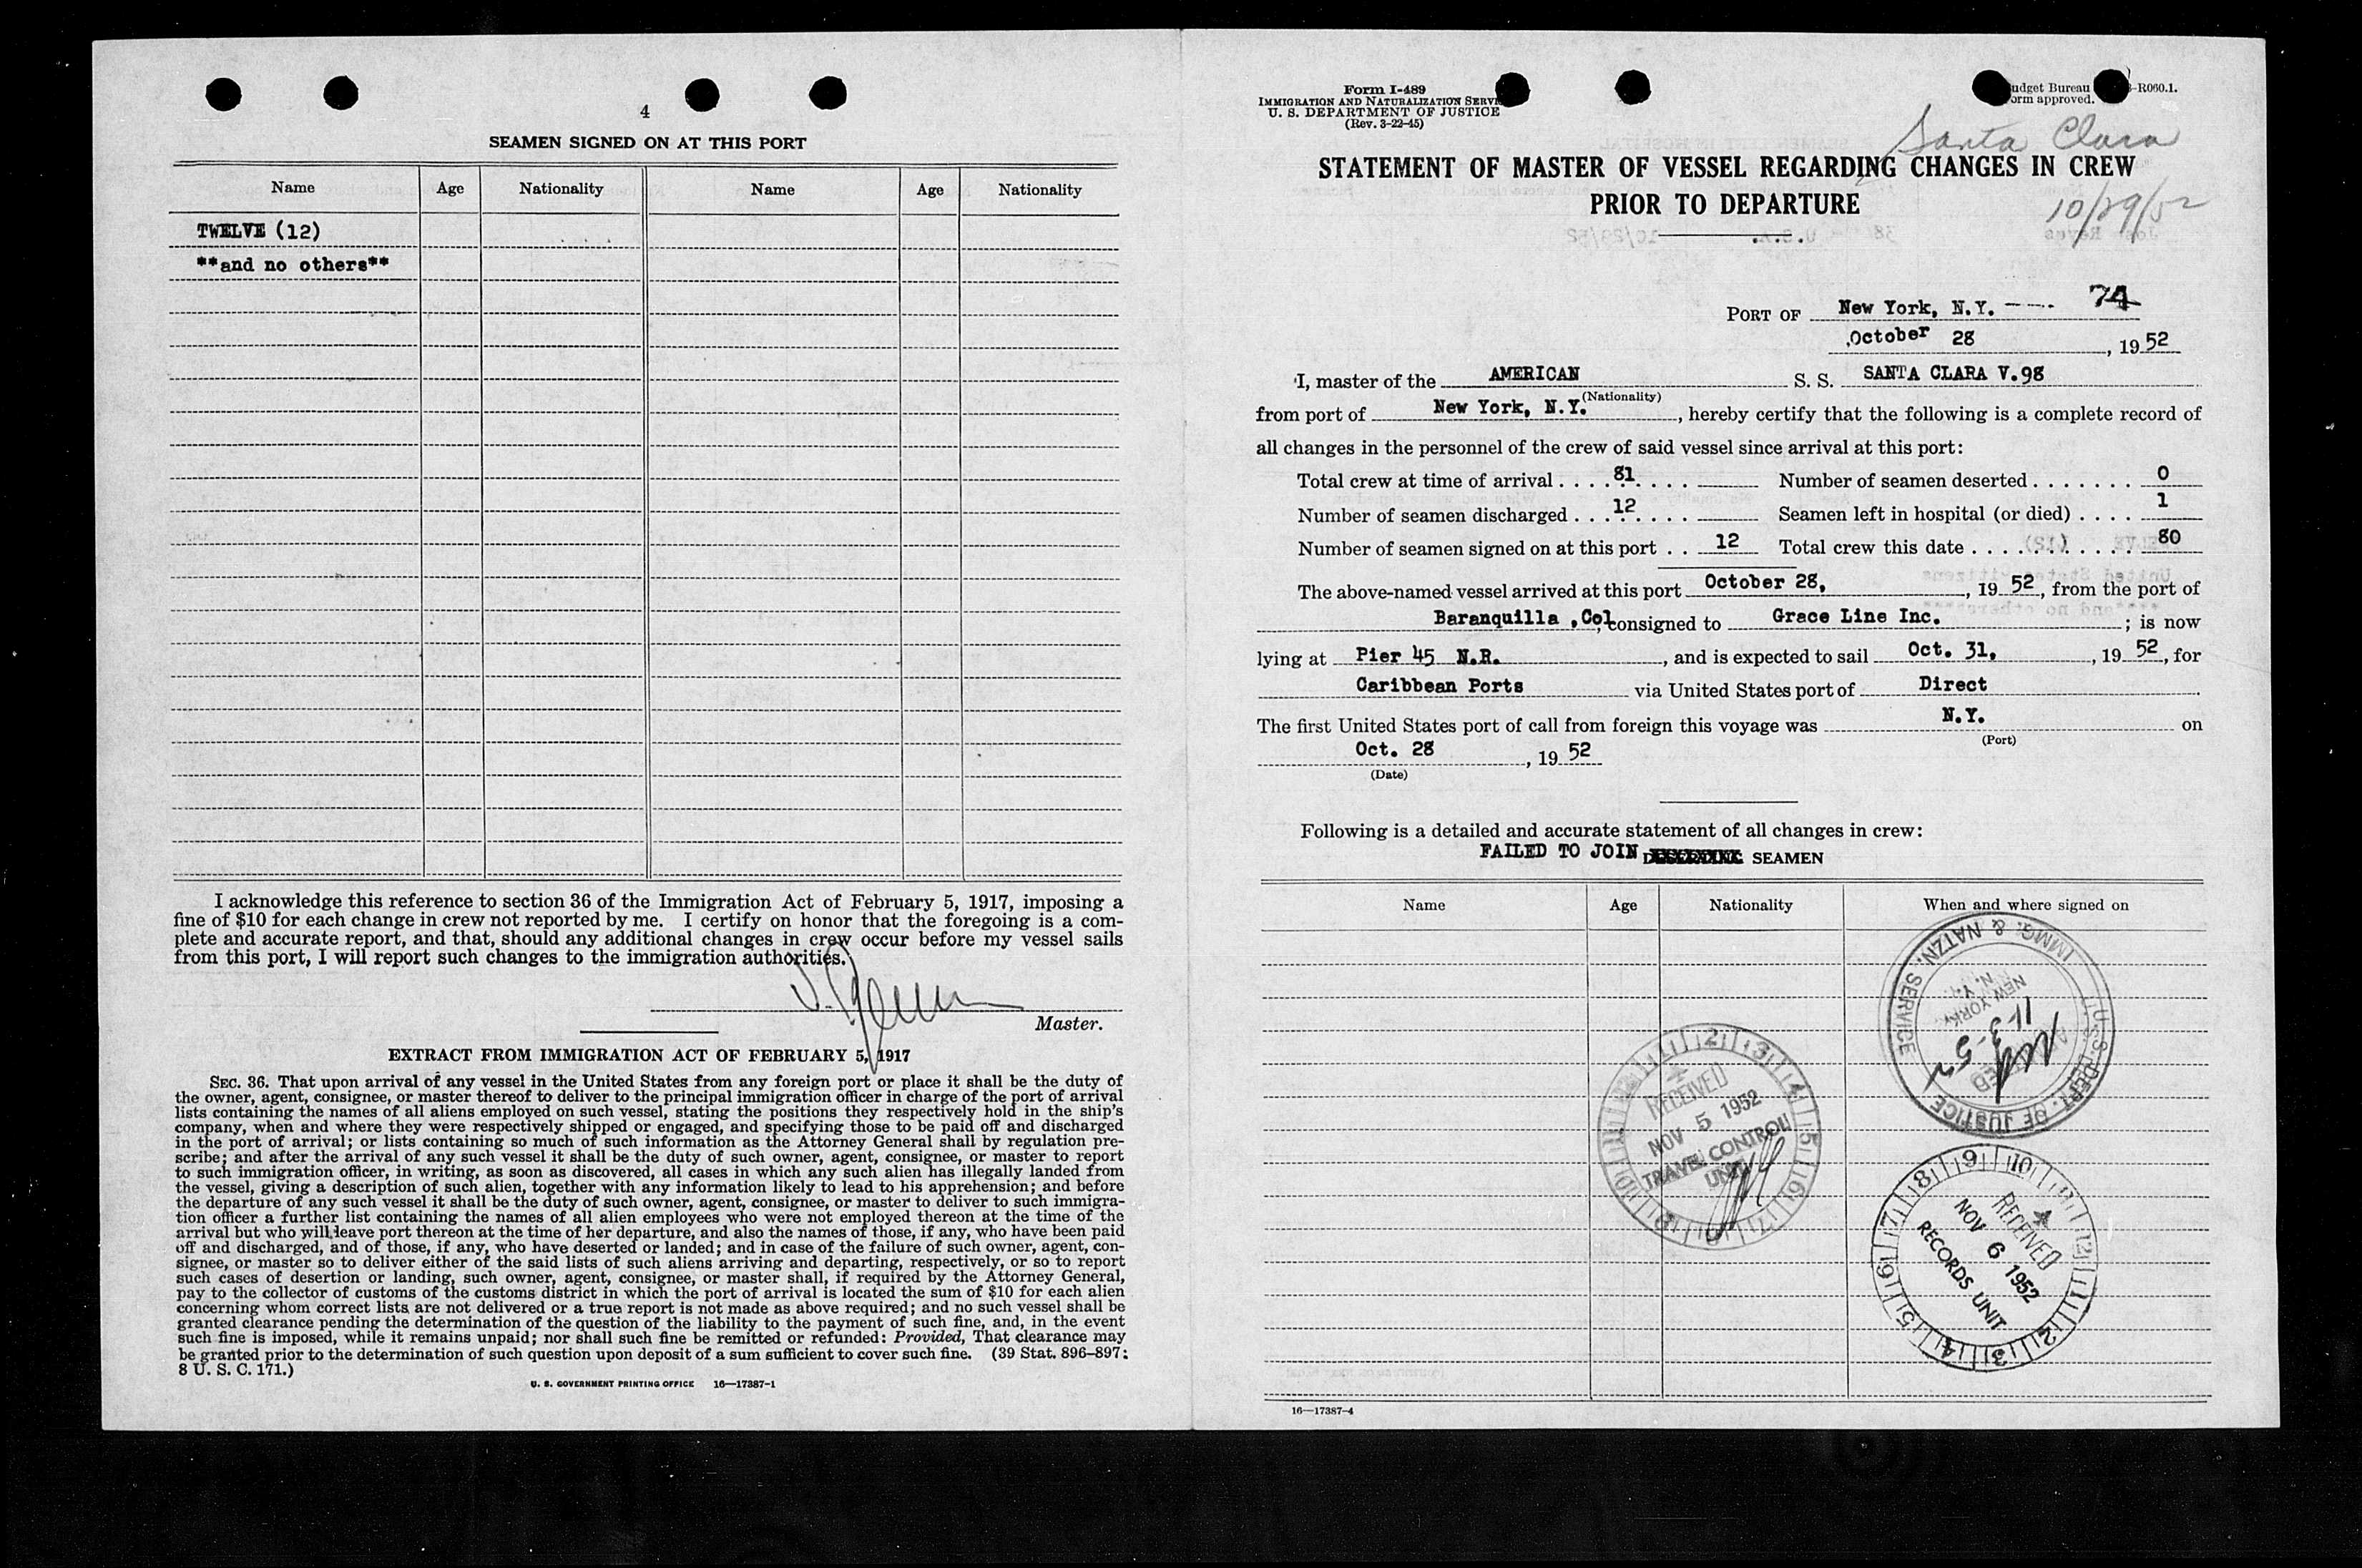 4
SEAMEN SIGNED ON AT THIS PORT
Name Age Nationality Name Age Nationality
TWELVE (12)
**and no others**
I acknowledge this reference to section 36 of the Immigration Act of February 5, 1917, imposing a
fine of $10 for each change in crew not reported by me. I certify on honor that the foregoing is a com-
plete and accurate report, and that, should any additional changes in crew occur before my vessel sails
from this port, I will report such changes to the immigration authorities.
Master.
EXTRACT FROM IMMIGRATION ACT OF FEBRUARY 5, 1917
SEC. 36. That upon arrival of any vessel in the United States from any foreign port or place it shall be the duty of
the owner, agent, consignee, or master thereof to deliver to the principal immigration officer in charge of the port of arrival
lists containing the names of all aliens employed on such vessel, stating the positions they respectively hold in the ship's
company, when and where they were respectively shipped or engaged, and specifying those to be paid off and discharged
in the port of arrival; or lists containing so much of such information as the Attorney General shall by regulation pre-
scribe; and after the arrival of any such vessel it shall be the duty of such owner, agent, consignee, or master to report
to such immigration officer, in writing, as soon as discovered, all cases in which any such alien has illegally landed from
the vessel, giving a description of such alien, together with any information likely to lead to his apprehension; and before
the departure of any such vessel it shall be the duty of such owner, agent, consignee, or master to deliver to such immigra-
tion officer a further list containing the names of all alien employees who were not employed thereon at the time of the
arrival but who will leave port thereon at the time of her departure, and also the names of those, if any, who have been paid
off and discharged, and of those, if any, who have deserted or landed; and in case of the failure of such owner, agent, con-
signee, or master so to deliver either of the said lists of such aliens arriving and departing, respectively, or so to report
such cases of desertion or landing, such owner, agent, consignee, or master shall, if required by the Attorney General,
pay to the collector of customs of the customs district in which the port of arrival is located the sum of $10 for each alien
concerning whom correct lists are not delivered or a true report is not made as above required; and no such vessel shall be
granted clearance pending the determination of the question of the liability to the payment of such fine, and, in the event
such fine is imposed, while it remains unpaid; nor shall such fine be remitted or refunded: Provided, That clearance may
be granted prior to the determination of such question upon deposit of a sum sufficient to cover such fine. (39 Stat. 896–897;
8 U. S. C. 171.)
U. S. GOVERNMENT PRINTING OFFICE 16—17387-1
Form I-489
IMMIGRATION AND NATURALIZATION SERVI
U. S. DEPARTMENT OF JUSTICE
(Rev. 3-22-45)
udget Bureau -R060.1.
orm approved.
Santa Clara
STATEMENT OF MASTER OF VESSEL REGARDING CHANGES IN CREW
PRIOR TO DEPARTURE
10/29/52
PORT OF New York, N.Y. 74
October 28, 1952
I, master of the AMERICAN S. S. SANTA CLARA V.98
(Nationality)
from port of New York, N.Y., hereby certify that the following is a complete record of
all changes in the personnel of the crew of said vessel since arrival at this port:
Total crew at time of arrival 81 Number of seamen deserted 0
Number of seamen discharged 12 Seamen left in hospital (or died) 1
Number of seamen signed on at this port 12 Total crew this date 80
The above-named vessel arrived at this port October 28, 1952, from the port of
Baranquilla ,Col consigned to Grace Line Inc. ; is now
lying at Pier 45 N.R., and is expected to sail Oct. 31, 1952, for
Caribbean Ports via United States port of Direct
The first United States port of call from foreign this voyage was N.Y. on
(Port)
Oct. 28, 1952
(Date)
Following is a detailed and accurate statement of all changes in crew:
FAILED TO JOIN SEAMEN
Name Age Nationality When and where signed on
U. S. DEPT. OF JUSTICE IMMG. & NATZN. SERVICE
NEW YORK, N. Y.
11-3-52
RECEIVED
NOV 5 1952
TRAVEL CONTROL
UNIT
RECEIVED
NOV 6 1952
RECORDS UNIT
16—17387-4